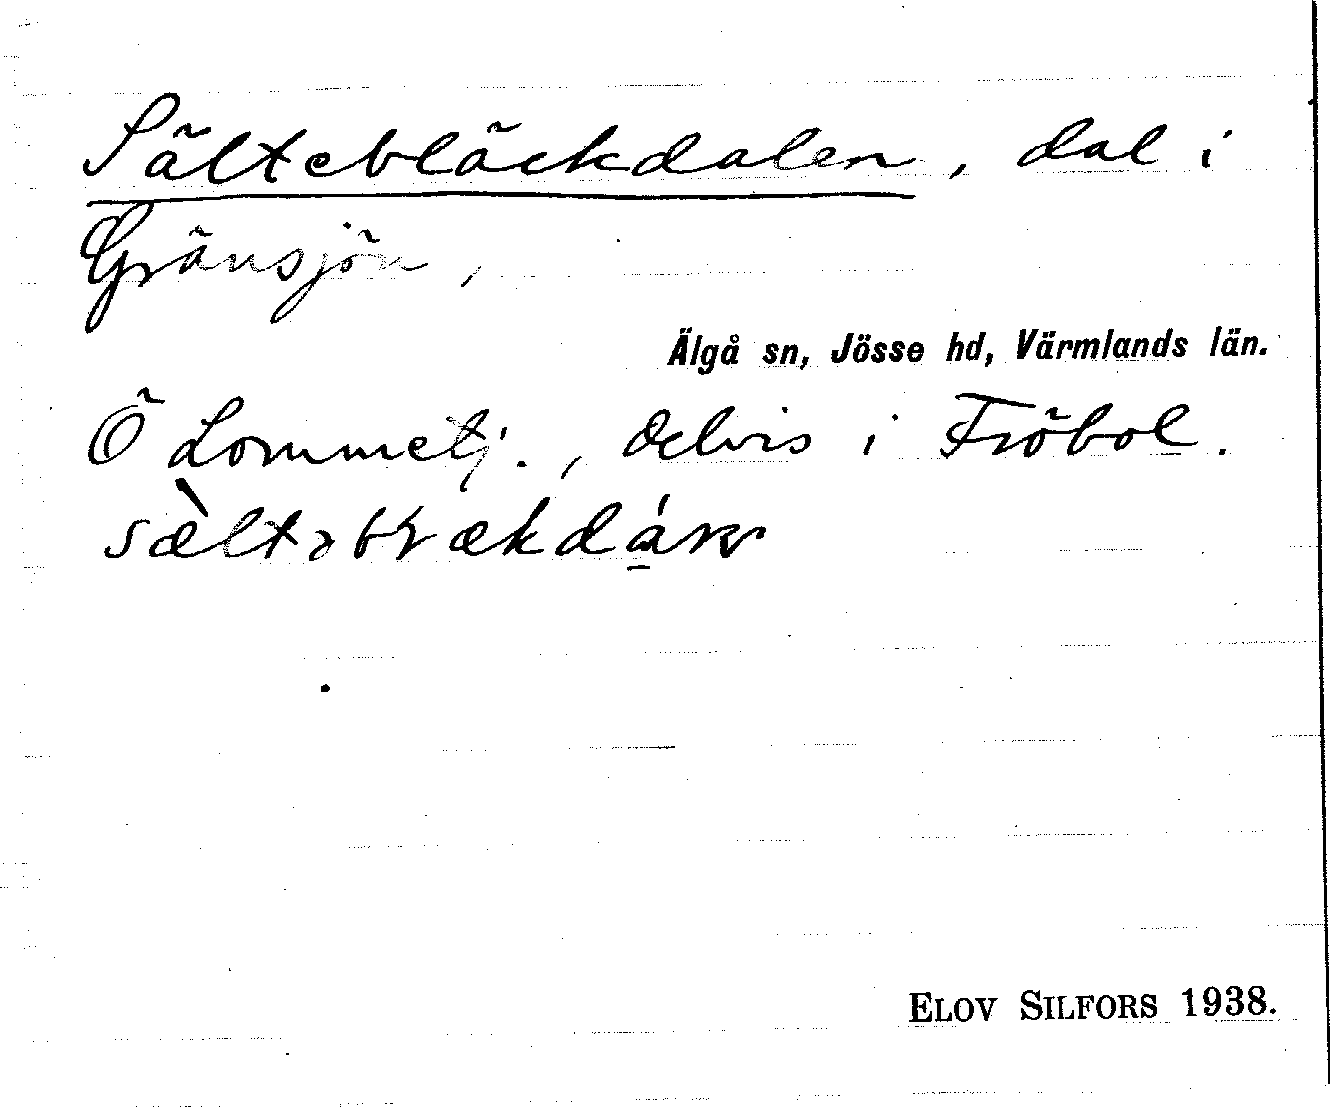 Sältebläckdalen, dal i
Gränsjön,
Älgå sn, Jösse hd, Värmlands län.
Ö Lommetj., delvis i Fröbol.
ELOV SILFORS 1938.